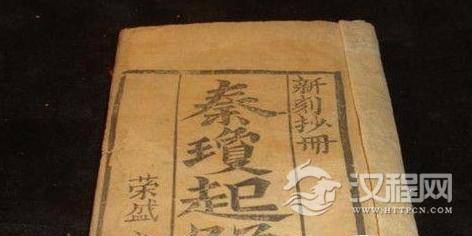 新刻抄冊
秦瓊起
荣盛
汉程网
HTTPCN.COM